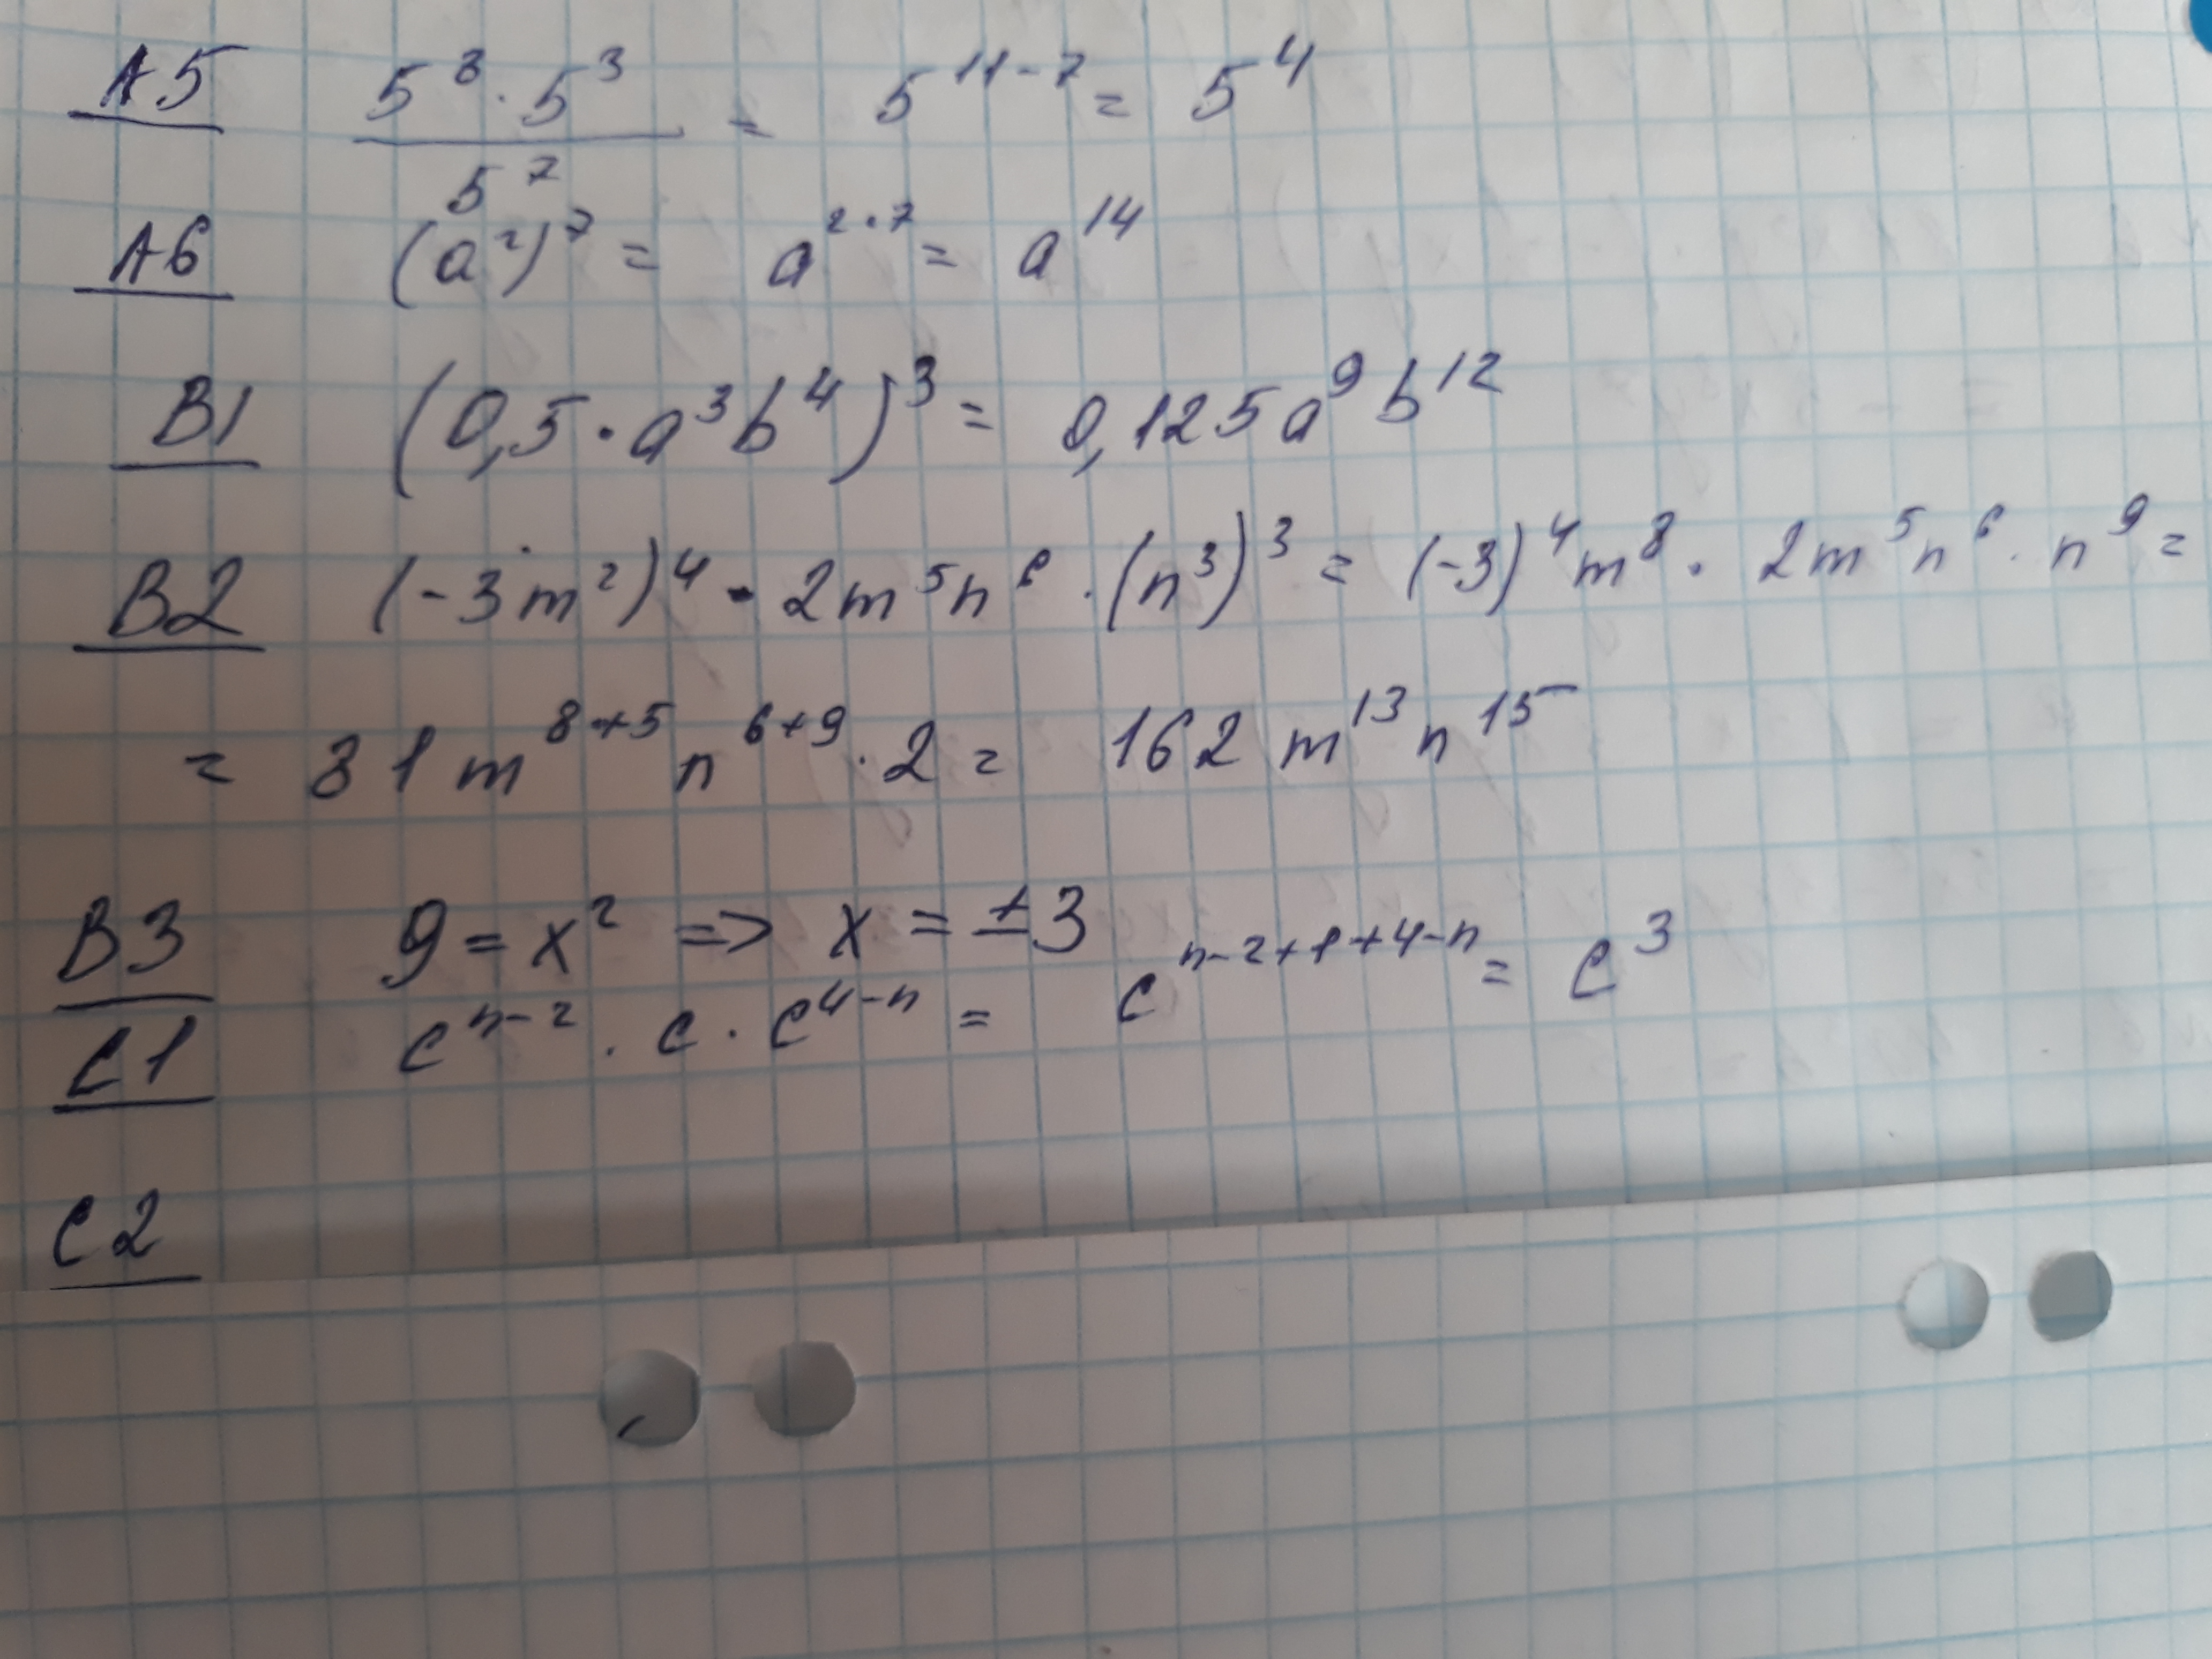 A5 (5^8 · 5^3)/5^7 = 5^(11-7) = 5^4
A6 (a^2)^7 = a^(2·7) = a^14
B1 (0,5 · a^3b^4)^3 = 0,125a^9b^12
B2 (-3m^2)^4 · 2m^5n^6 · (n^3)^3 = (-3)^4m^8 · 2m^5n^6 · n^9 =
= 81m^(8+5)n^(6+9) · 2 = 162m^13n^15
B3 9 = x^2 => x = ±3
C1 c^(n-2) · c · c^(4-n) = c^(n-2+1+4-n) = c^3
C2